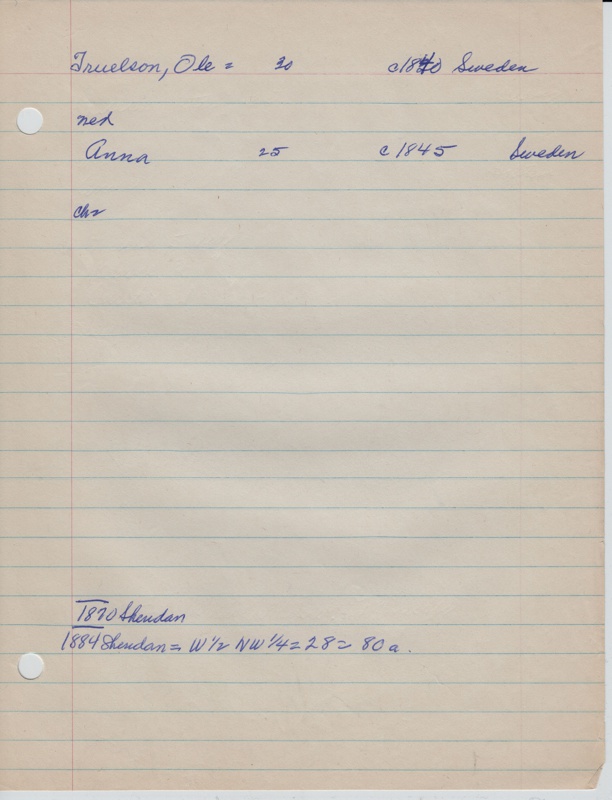 Truelson, Ole = 30 c1840 Sweden
med
Anna 25 c1845 Sweden
chr
1870 Sheridan
1884 Sheridan = W 1/2 NW 1/4 = 28 = 80 a.